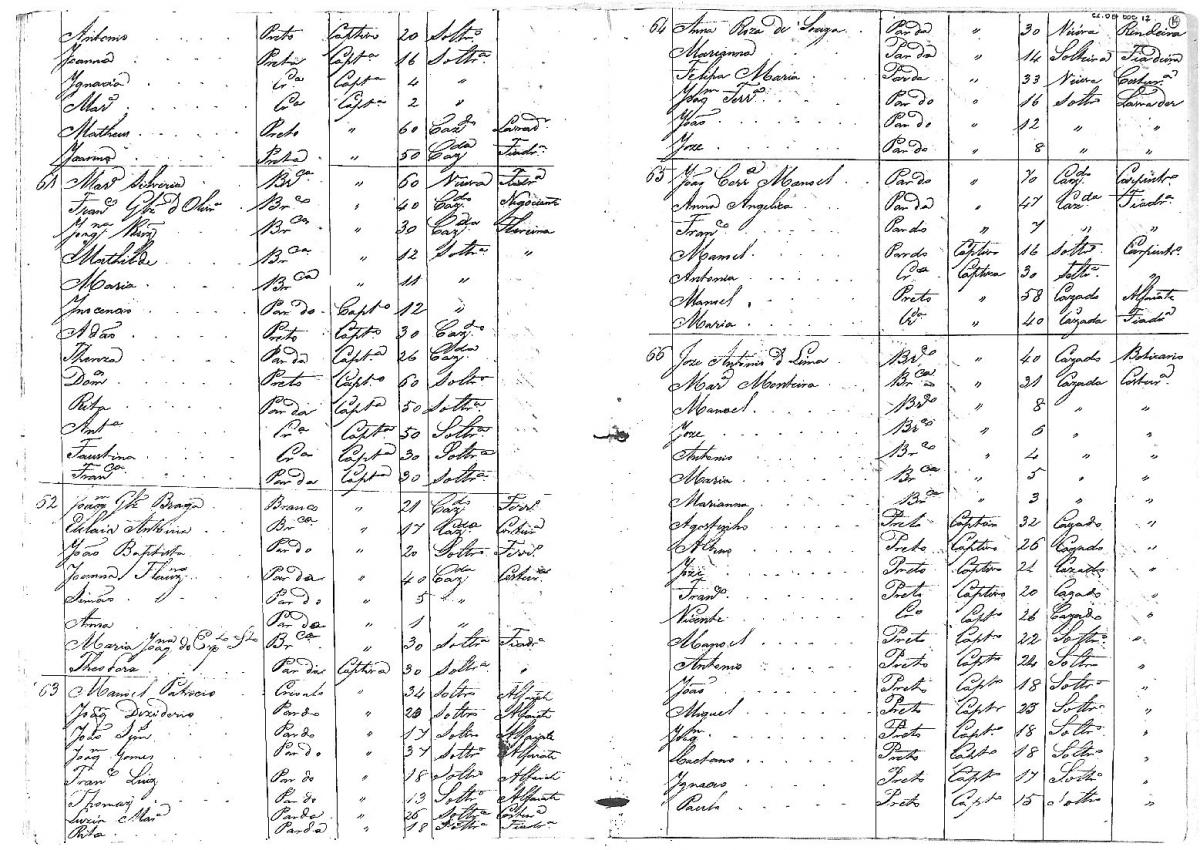 Antonio Preto Captivo 20 Soltro
Joanna Preta Capta 16 Soltra
Ignacia Cra Capta 4 "
Mara Cra Capta 2 "
Matheus Preto " 60 Cazdo Lavrador
Joanna Preta " 50 Cazda Fiadra
61 Mara Silveria Brca " 60 Viuva Fiadra
Franco Glz d Olivra Brco " 40 Cazdo Negociante
Joaqna Brca " 30 Cazda
Mathilde Brca " 12 Soltra "
Maria Brca " 11 "
Inocencio Pardo Capto 12 "
Adão Preto Capto 30 Cazdo
Thereza Parda Capta 26 Cazda
Domos Preto Capto 60 Soltro
Rita Parda Capta 50 Soltra
Anta Cra Capta 50 Soltra
Faustina Cra Capta 30 Soltra
Franca Parda Capta 30 Soltra
62 Joaqm Glz Braga Branco " 21 Cazdo Ferro
Antonia Brca " 17 Cazda Costura
João Baptista Pardo " 20 Soltro Ferro
Joanna Parda " 40 Cazda Costura
Simão " Pardo " 5 "
Anna Parda " 1 "
Maria Joaqna do Espto Sto Brca " 30 Soltra Fiadra
Theodora Parda Captiva 30 Soltra "
63 Manoel Patricio Crioulo " 34 Soltro Alfaiate
Joaqm Deziderio Pardo " 23 Soltro Alfaiate
João Pardo " 17 Soltro Alfaiate
Joaqm Gomes Pardo " 37 Soltro Alfaiate
Franco Luiz Pardo " 18 Soltro Alfaiate
Thomaz Pardo " 13 Soltro Alfaiate
Luzia Mara Parda " 26 Soltra Costura
Rita Parda " 18 Soltra Fiadra
64 Anna Roza de Souza Parda " 30 Viuva Rendeira
Marianna Parda " 14 Solteira Fiadeira
Felipa Maria Parda " 33 Viuva Costura
Joaqm Ferra Pardo " 16 Soltro Lavrador
João Pardo " 12 " "
Joze Pardo " 8 " "
65 Joaq Corra Manoel Pardo " 70 Cazdo Carpintro
Anna Angelica Parda " 47 Cazda Fiadra
Franco Pardo " 7 " "
Manoel Pardo Captivo 16 Soltro Carpintro
Antonia Cra Captiva 30 Soltra "
Manoel Preto " 58 Cazado Alfaiate
Maria Cra " 40 Cazada Fiadra
66 Joze Antonio d Lima Brco " 40 Cazado Boticario
Mara Monteira Brca " 31 Cazada Costura
Manoel Brco " 8 " "
Joze Brco " 6 " "
Antonio Brco " 4 " "
Maria Brca " 5 " "
Marianna Brca " 3 " "
Agostinho Preto Captivo 32 Cazado "
Albino Preto Captivo 26 Cazado "
Joze Preto Captivo 21 Cazado "
Franco Preto Captivo 20 Cazado "
Vicente Cro Capto 26 Cazado "
Manoel Preto Capto 22 Soltro "
Antonio Preto Capto 24 Soltro "
João Preto Capto 18 Soltro "
Miguel Preto Capto 23 Soltro "
Joaqm Preto Capto 18 Soltro "
Caetano Preto Capto 18 Soltro "
Ignacio Preto Capto 17 Soltro "
Paulo Preto Capto 15 Soltro "